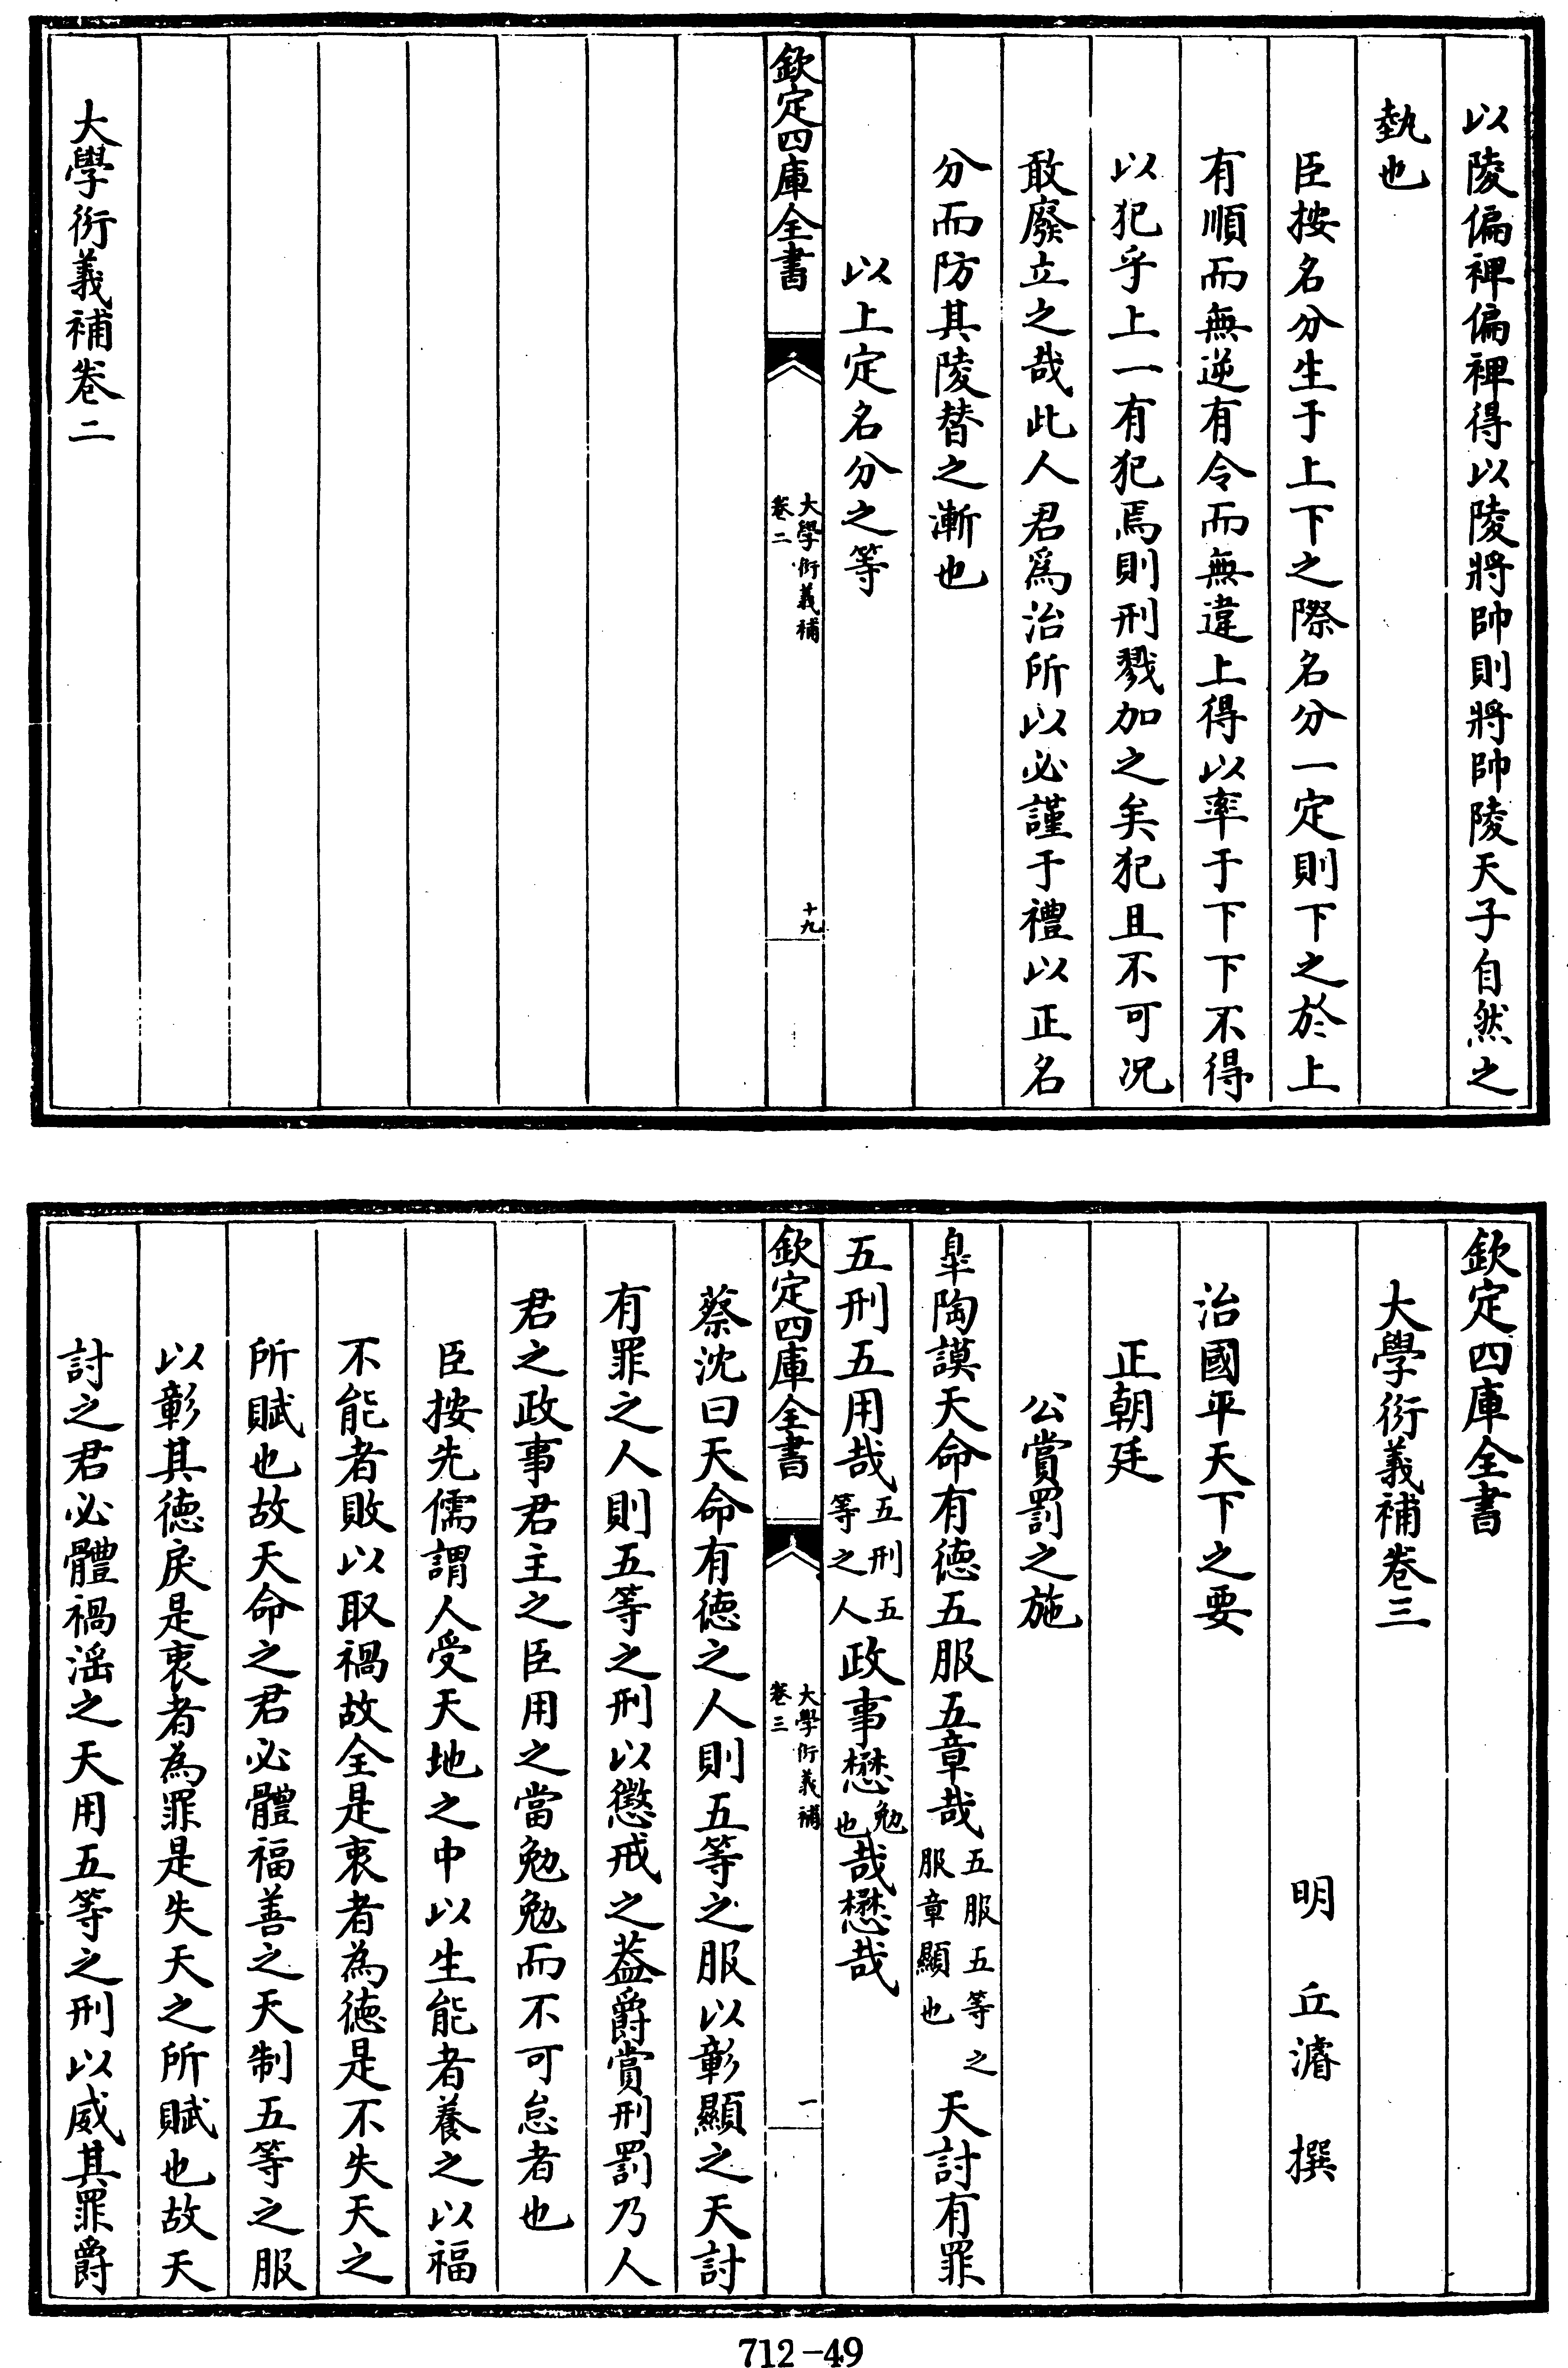 以陵偏裨偏裨得以陵將帥則將帥陵天子自然之
埶也
臣按名分生于上下之際名分一定則下之於上
有順而無逆有令而無違上得以率于下下不得
以犯乎上一有犯焉則刑戮加之矣犯且不可况
敢廢立之哉此人君爲治所以必謹于禮以正名
分而防其陵替之漸也
以上定名分之等
欽定四庫全書
大學衍義補
卷二
十九
大學衍義補卷二
欽定四庫全書
大學衍義補卷三
明 丘濬 撰
治國平天下之要
正朝廷
公賞罰之施
臯陶謨天命有德五服五章哉五服五等之服章顯也天討有罪
五刑五用哉五刑五等之人政事懋勉也哉懋哉
欽定四庫全書
大學衍義補
卷三
一
蔡沈曰天命有德之人則五等之服以彰顯之天討
有罪之人則五等之刑以懲戒之葢爵賞刑罰乃人
君之政事君主之臣用之當勉勉而不可怠者也
臣按先儒謂人受天地之中以生能者養之以福
不能者敗以取禍故全是衷者為德是不失天之
所賦也故天命之君必體福善之天制五等之服
以彰其德戾是衷者為罪是失天之所賦也故天
討之君必體禍淫之天用五等之刑以威其罪爵
712-49